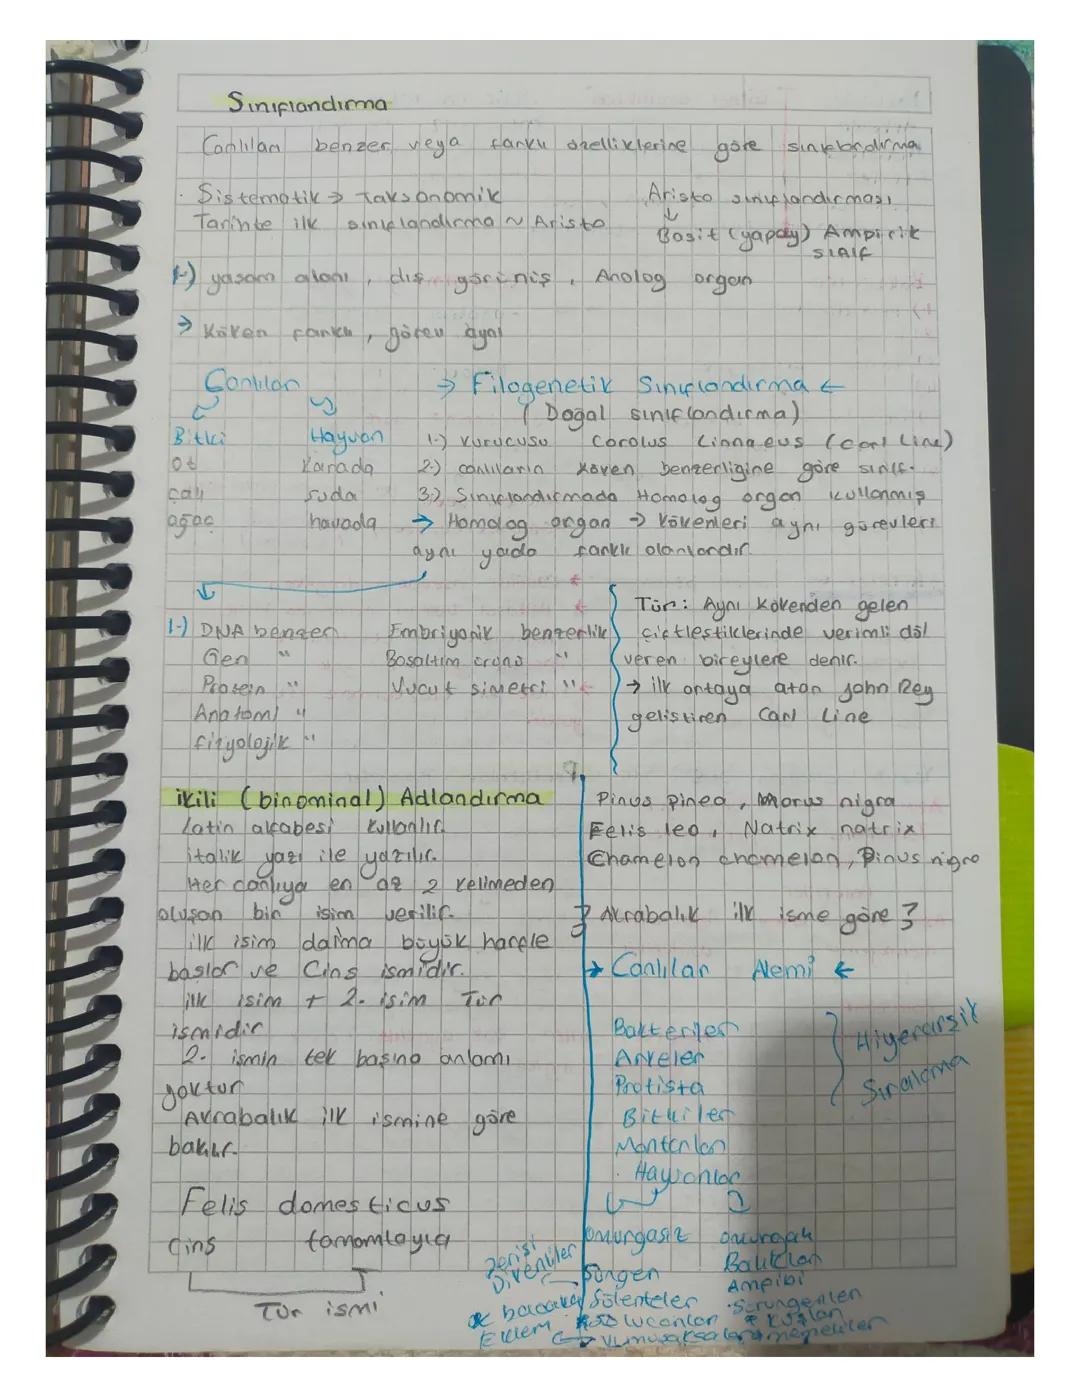 Sınıflandırma
Canlıları benzer veya farklı özelliklerine göre sınıflandırma
· Sistematik → taksonomik
Tarihte ilk sınıflandırma ~ Aristo
Aristo sınıflandırması
↓
Basit (yapay) Ampirik
sınıf
1-) yaşam alanı, dış görünüş, Anolog organ
→ Köken farklı, görev aynı
Canlılar
Bitki Hayvan
ot karada
çalı suda
ağaç havada
→ Filogenetik Sınıflandırma ←
(Doğal sınıflandırma)
1-) Kurucusu Carolus Linnaeus (Carl Line)
2-) canlıların köken benzerliğine göre sınıf.
3-) Sınıflandırmada Homolog organ kullanmış
→ Homolog organ → kökenleri aynı görevleri
aynı yada farklı olanlardır.
1-) DNA benzer Embriyonik benzerlik
Gen " Boşaltım ürünü "
Protein " Vücut simetri "
Anatomi "
fizyolojik "
Tür: Aynı kökenden gelen
çiftleştiklerinde verimli döl
veren bireylere denir.
→ ilk ortaya atan John Rey
geliştiren Carl Line
ikili (binominal) Adlandırma
Latin alfabesi kullanılır.
italik yazı ile yazılır.
Her canlıya en az 2 kelimeden
oluşan bir isim verilir.
ilk isim daima büyük harfle
başlar ve Cins ismidir.
ilk isim + 2. isim Tür
ismidir
2. ismin tek başına anlamı
yoktur
Akrabalık ilk ismine göre
bakılır.
Felis domesticus
Cins tamamlayıcı
Tür ismi
Pinus pinea, Morus nigra
Felis leo, Natrix natrix
Chamelon chamelon, Pinus nigra
} Akrabalık ilk isme göre }
→ Canlılar Alemi ←
Bakteriler
Arkeler
Protista
Bitkiler
Mantarlar
· Hayvanlar
Hiyerarşik
Sıralama
omurgasız omurgalı
Derisi
Dikenliler
Sünger
Sölenteler
Solucanlar
Yumuşakçalar
Eklem bacaklı
Balıklar
Ampibi
· Sürüngenler
* Kuşlar
memeliler